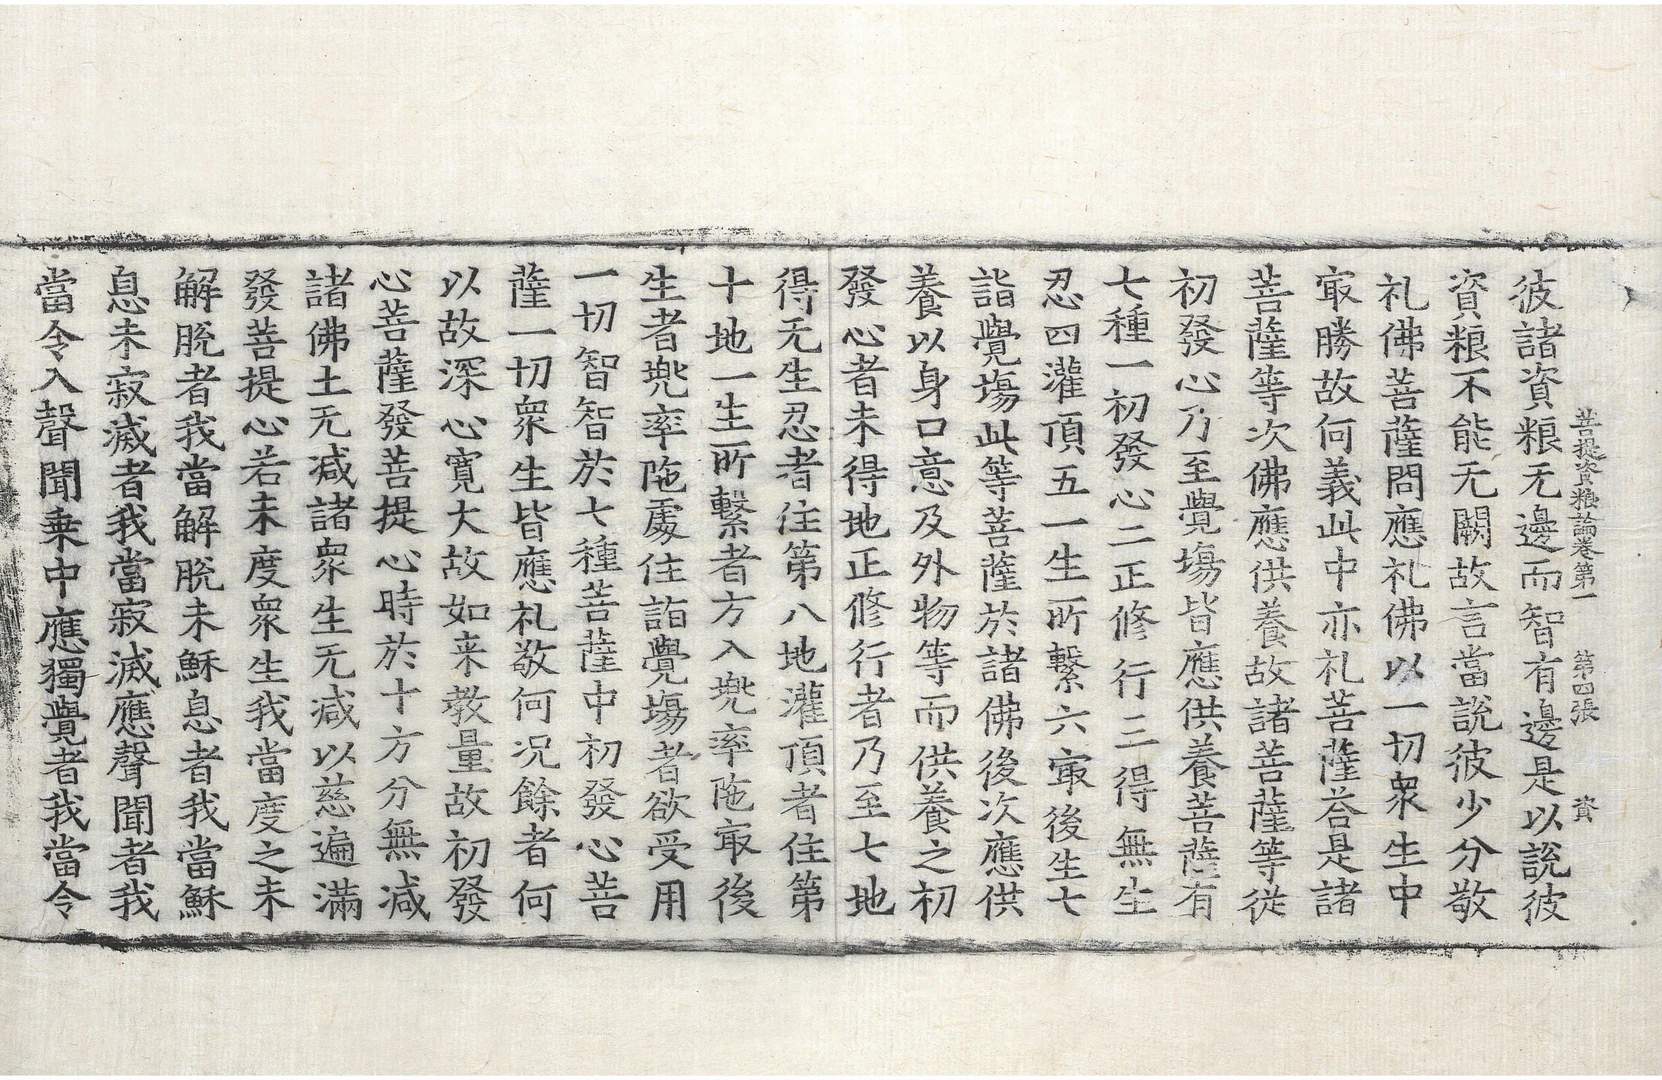 菩提資粮論卷第一 第四張 資
彼諸資粮无邊而智有邊是以說彼
資粮不能无闕故言當說彼少分敬
礼佛菩薩問應礼佛以一切衆生中
㝡勝故何義此中亦礼菩薩荅是諸
菩薩等次佛應供養故諸菩薩等從
初發心乃至覺塲皆應供養菩薩有
七種一初發心二正修行三得無生
忍四灌頂五一生所繫六㝡後生七
詣覺塲此等菩薩於諸佛後次應供
養以身口意及外物等而供養之初
發心者未得地正修行者乃至七地
得无生忍者住第八地灌頂者住第
十地一生所繫者方入兠率陁㝡後
生者兠率陁處住詣覺塲者欲受用
一切智智於七種菩薩中初發心菩
薩一切衆生皆應礼敬何况餘者何
以故深心寛大故如来教量故初發
心菩薩發菩提心時於十方分無减
諸佛土无减諸衆生无减以慈遍滿
發菩提心若未度衆生我當度之未
解脫者我當解脫未穌息者我當穌
息未寂滅者我當寂滅應聲聞者我
當令入聲聞乗中應獨覺者我當令